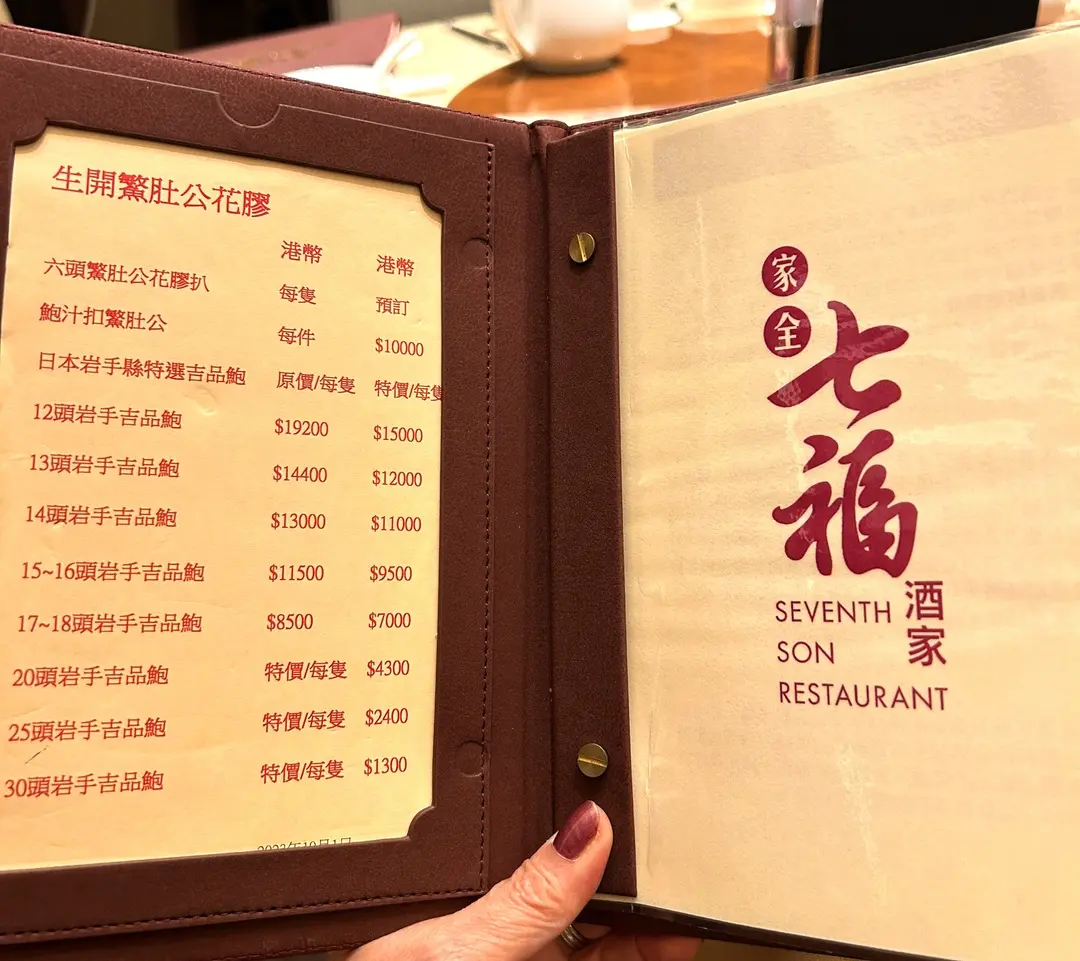 生開鰵肚公花膠
港幣 港幣
六頭鰵肚公花膠扒 每隻 預訂
鮑汁扣鰵肚公 每件 $10000
日本岩手縣特選吉品鮑 原價/每隻 特價/每隻
12頭岩手吉品鮑 $19200 $15000
13頭岩手吉品鮑 $14400 $12000
14頭岩手吉品鮑 $13000 $11000
15~16頭岩手吉品鮑 $11500 $9500
17~18頭岩手吉品鮑 $8500 $7000
20頭岩手吉品鮑 特價/每隻 $4300
25頭岩手吉品鮑 特價/每隻 $2400
30頭岩手吉品鮑 特價/每隻 $1300
家全
七福
酒家
SEVENTH
SON
RESTAURANT